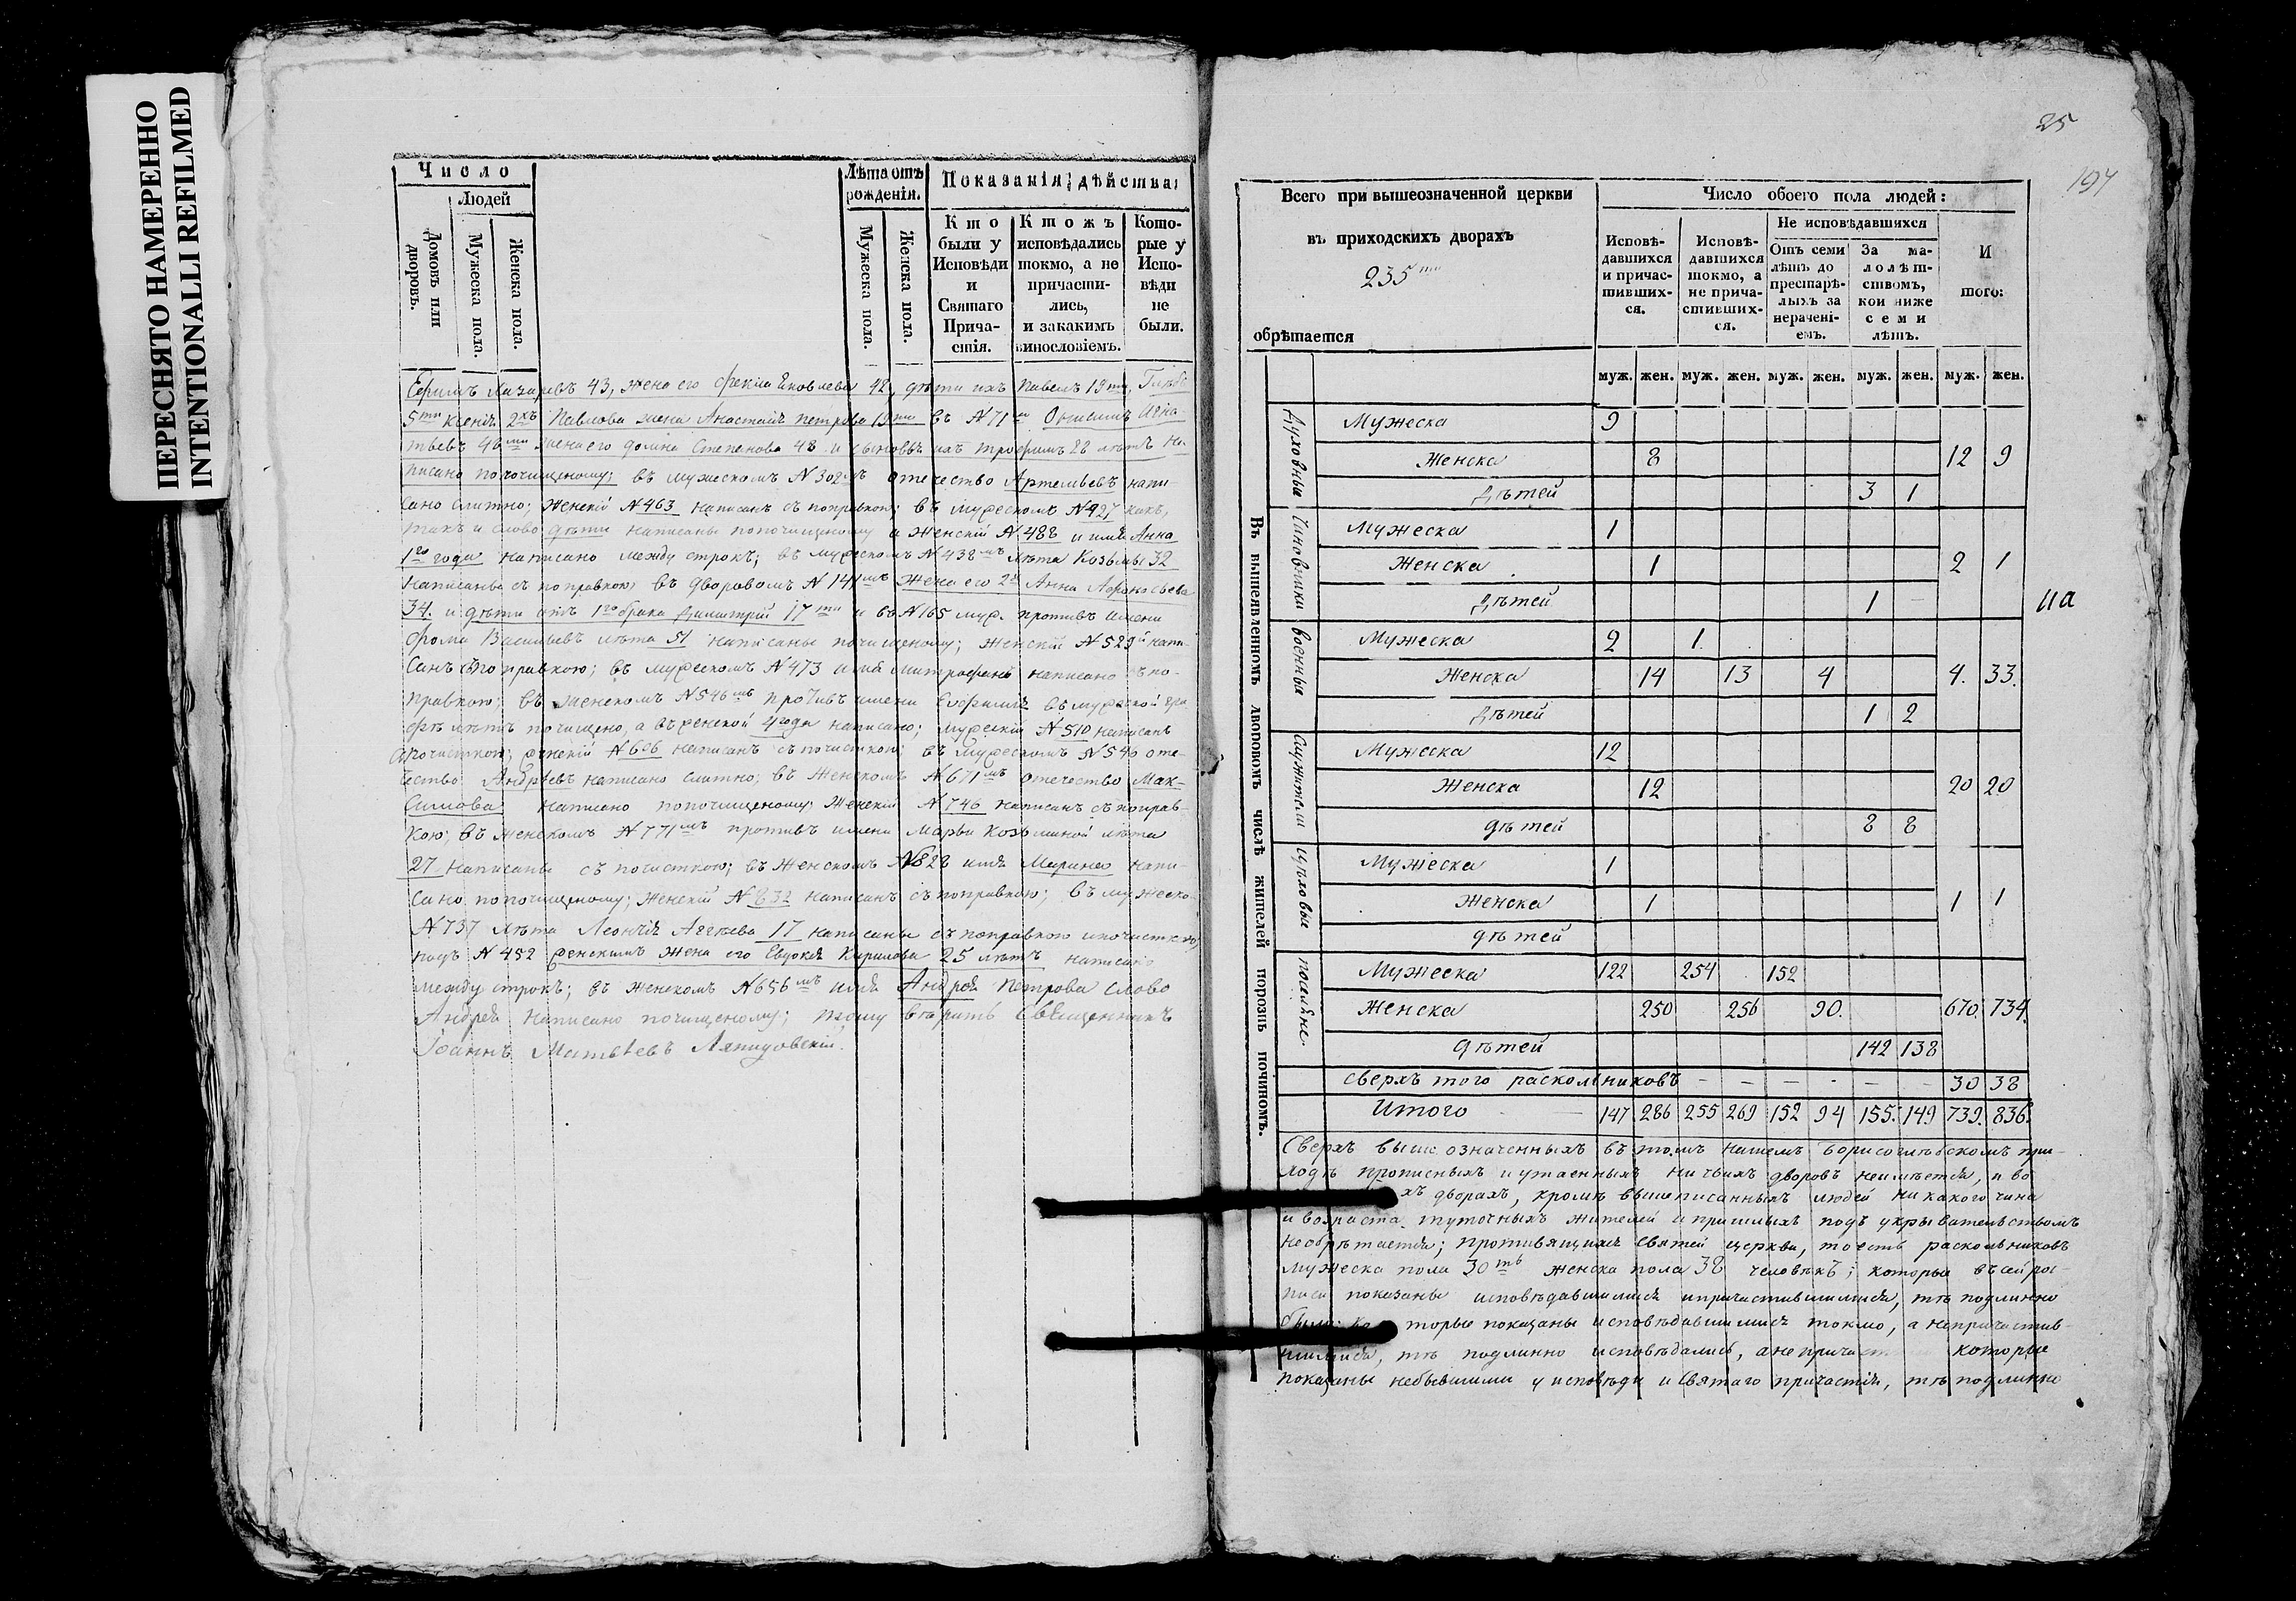 ПЕРЕСНЯТО НАМЕРЕННО
INTENTIONALLI REFILMED
Число
Людей
Домовъ или дворовъ.
Мужеска пола.
Женска пола.
Лѣта отъ рожденія.
Мужеска пола.
Женска пола.
Показанія дѣйства:
Кто были у Исповѣди и Святаго Причастія.
Ктожъ исповѣдались токмо, а не причастились, и закакимъ винословіемъ.
Которые у Исповѣди не были.
Ефимъ Лазаревъ 43, жена его Фекла Яковлева 42, дѣти ихъ Павелъ 19ти, Глѣбъ
5ти Ксенія 2хъ Павлова жена Анастасія Петрова 19ти въ №71м Онисимъ Игна-
тьевъ 46ти жена его Домна Степанова 48 и сыновъ ихъ Трофимъ 22 лѣтъ на-
писано почищеному; въ мужескомъ №302мъ отечество Артемьевъ напи-
сано слитно; женскій №463 написанъ съ поправкою; въ мужескомъ №427 какъ,
такъ и слово дѣти написаны попочищеному и Женскій №488 и имя Анна
1го года написано между строкъ; въ мужескомъ №438мъ лѣта Козьмы 32
написаны съ поправкою въ дворовомъ №141мъ жена его 2я Анна Афонасьева
34. и дѣти отъ 1го брака Димитрій 17ти и въ №165 муж. противъ имени
Фома Васильевъ лѣта 51 написаны почищеному; Женскій №529й напи-
санъ съ поправкою; въ мужескомъ №473 имя Митрофанъ написано съ по-
правкою; въ женскомъ №546мъ противъ имени Евфимія въ мужской гра-
фѣ лѣтъ почищено, а въ женской 4 года написано; мужескій №510 написанъ
съ почисткою; женскій №606 написанъ съ почисткою; въ мужескомъ №540 оте-
чество Андреевъ написано слитно; въ Женскомъ №671мъ отечество Мак-
симова написано попочищеному; Женскій №746 написанъ съ поправ-
кою; въ Женскомъ №771мъ противъ имени Марьи Козьминой лѣта
27 написаны съ почисткою; въ Женскомъ №828 имя Марина напи-
сано попочищеному; Женскій №832 написанъ съ поправкою; въ мужеско-
№737 лѣта Леонтія Агѣева 17 написаны съ поправкою и почисткою,
подъ №492 женскимъ жена его Евдокія Кирилова 25 лѣтъ написано
между строкъ; въ женскомъ №656мъ имя Андрея Петрова слово
Андрея написано почищеному; тому вѣрить Священникъ
Іоаннъ Матвѣевъ Ляпидовскій.
25
197
Всего при вышеозначенной церкви
въ приходскихъ дворахъ
235ти
обрѣтается
Число обоего пола людей:
Исповѣдавшихся и причастившихся.
Исповѣдавшихся токмо, а не причастившихся.
Не исповѣдавшихся
Отъ семи лѣтъ до престарѣлыхъ за нераченіемъ.
За малолѣтствомъ, кои ниже семи лѣтъ.
И того:
муж. жен. муж. жен. муж. жен. муж. жен. муж. жен.
Въ вышеявленномъ дворовомъ числѣ жителей порознь по чиномъ.
Духовныя
Мужеска 9
Женска 8 12 9
Дѣтей 3 1
Чиновники
Мужеска 1
Женска 1 2 1
Дѣтей 1 –
11а
военныя
Мужеска 2 1.
Женска 14 13 4 4. 33.
Дѣтей 1 2
служители
Мужеска 12
Женска 12 20 20
дѣтей 8 8
цѣховые
Мужеска 1
Женска 1 1 1
дѣтей
поселяне.
Мужеска 122 254 152
Женска 250 256 90. 670. 734.
дѣтей 142 138
сверхъ того раскольниковъ – – – – – – 30 38
Итого 147. 286 255 269 152 94 155. 149 739. 836.
Сверхъ выше означенныхъ въ томъ нашемъ Борисоглѣбскомъ при-
ходѣ прописныхъ и утаенныхъ ничьихъ дворовъ неимѣется, и во
хъ дворахъ, кромѣ вышеписанныхъ людей никакого чина
и возраста туточныхъ жителей и пришлыхъ подъ укрывательствомъ
не обрѣтается; противящихся святей церкви, то есть раскольниковъ
мужеска пола 30ть женска пола 38 человѣкъ; которыя въ сей рос-
писи показаны исповѣдавшимися и причастившимися, тѣ подлинно
были; которые показаны исповѣдавшимися токмо, а непричастив-
шимися, тѣ подлинно исповѣдались, а не причаст которые
показаны небывшими у исповѣди и Святаго причастія, тѣ подлинно